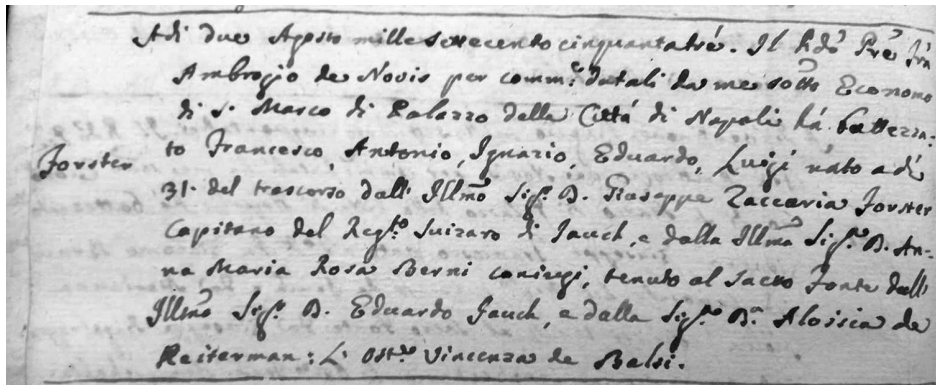 Adi due Agosto mille settecento cinquantatré. Il Rdo Pre Frà
Ambrogio de Novis per comm.e datali da me sotto Economo
di S. Marco di Palazzo della Città di Napoli há battezza-
Forster
to Francesco, Antonio, Ignazio, Eduardo, Luigi nato a dì
31. del trascorso dall' Illmo Sig.r D. Giuseppe Zaccaria Forster
Capitano del Reg.to Suizaro di Jauch, e dalla Illma Sig.ra D. An-
na Maria Rosa Berni coniugi, tenuto al Sacro Fonte dall'
Illmo Sig.r D. Eduardo Jauch, e dalla Sig.ra D.a Aloisia de
Reiterman: L' Ost.ce Vincenza de Belsi.